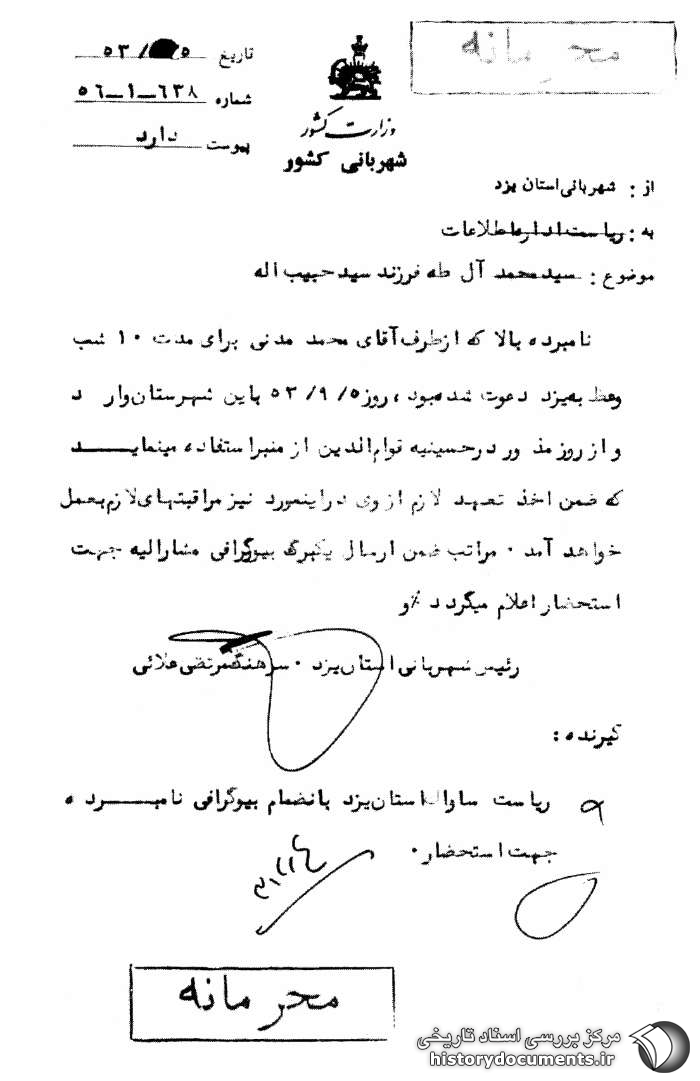 محرمانه
تاریخ ۵ / ۵۳
شماره ۶۳۸-۱-۵۶
پیوست دارد
وزارت کشور
شهربانی کشور
از : شهربانی استان یزد
به : ریاست اداره اطلاعات
موضوع : سید محمد آل طه فرزند سید حبیب اله
نامبرده بالا که ازطرف آقای محمد مدنی برای مدت ۱۰ شب
وعظ به یزد دعوت شده بود ، روز ۵ / ۹ / ۵۳ باین شهرستان وار د
و از روز مذ ور در حسینیه قوام الدین از منبر استفاده مینماید
که ضمن اخذ تعهد لازم از وی دراینمورد نیز مراقبتهای لازم بعمل
خواهد آمد . مراتب ضمن ارسال یکبرگ بیوگرافی مشارالیه جهت
استحضار اعلام میگردد ./ و
رئیس شهربانی استان یزد . سرهنگ مرتضی علائی
گیرنده :
ریاست ساواک استان یزد بانضمام بیوگرافی نامبرده
جهت استحضار .
محرمانه
مرکز بررسی اسناد تاریخی
historydocuments.ir